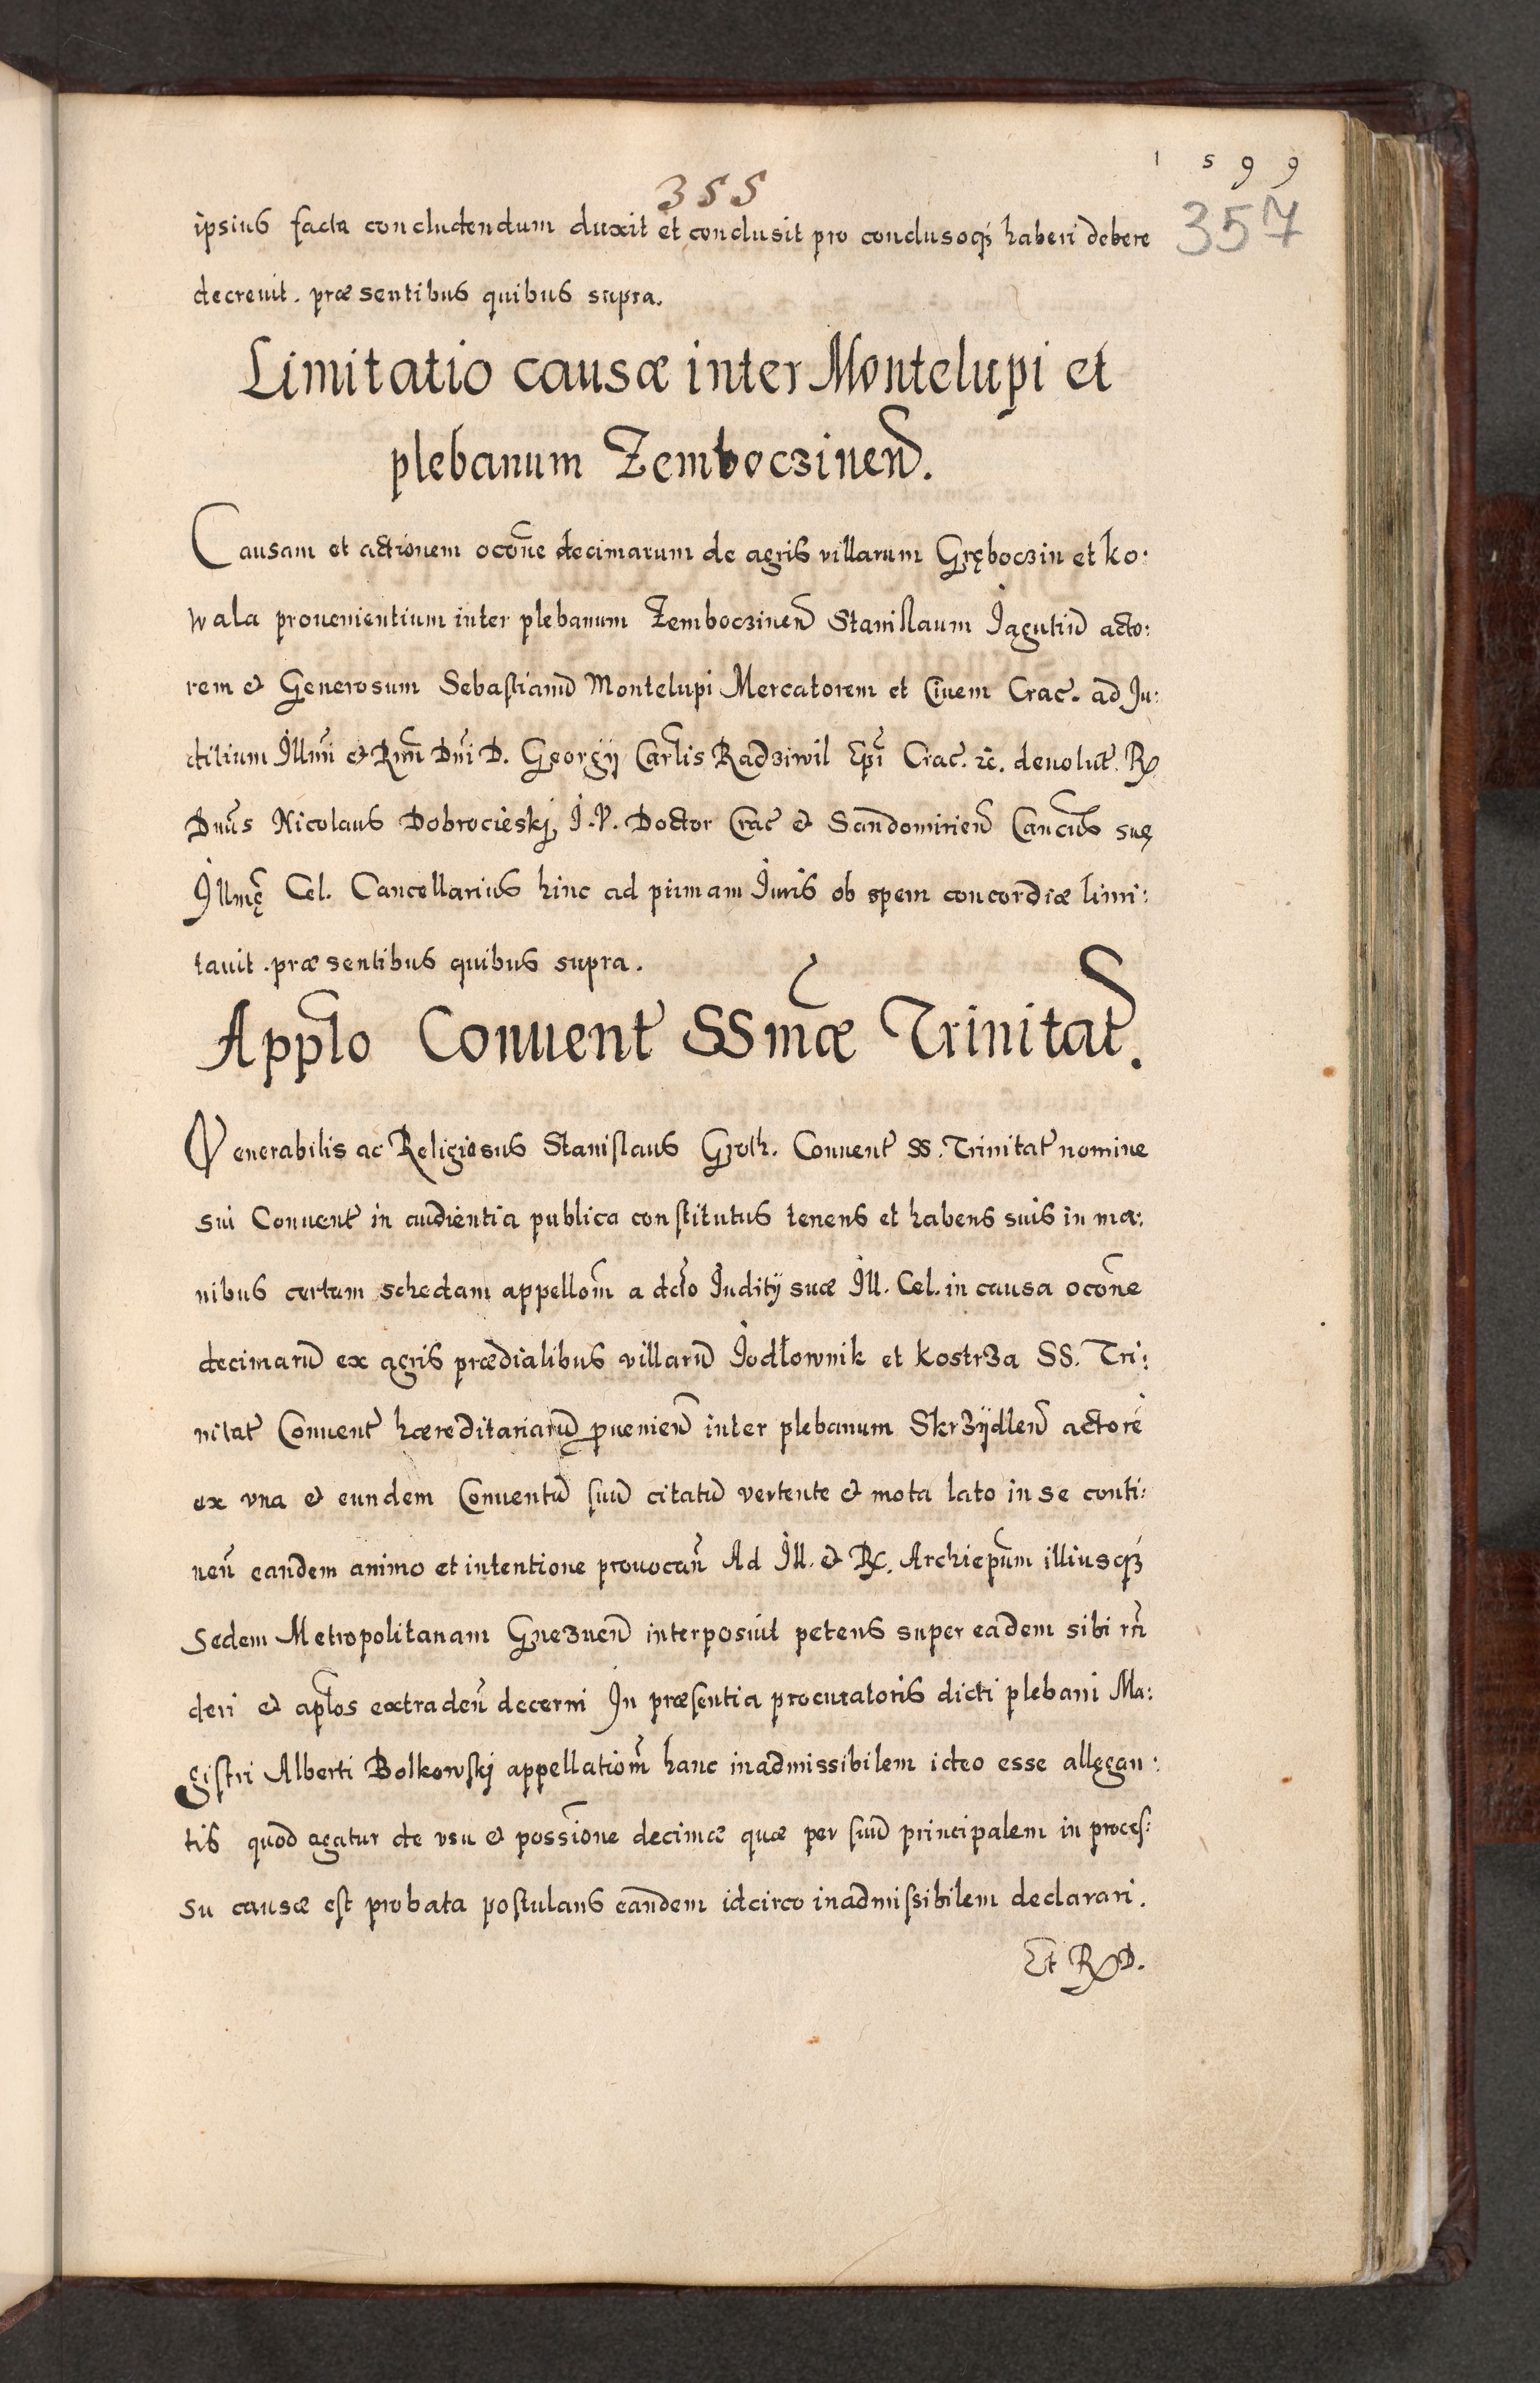 1599
355
357
ipsius facta concludendum duxit et conclusit pro conclusoq́3 haberi debere
decreuit. præsentibus quibus supra.
Limitatio causæ inter Montelupi et
plebanum Zemboczinen̄.
Causam et actionem occōne decimarum de agris villarum Gręboczin et Ko:
wala prouenientium inter plebanum Zemboczinen̄ Stanislaum Jagutiū acto:
rem et Generosum Sebastianū Montelupi Mercatorem et Ciuem Crac̄. ad Ju:
ditium Illm̄i et Rm̄i Dn̄i D. Georgij Car̄lis Radziwil Ep̄i Crac̄. ꝛc. deuolut̄. R
Dn̄us Nicolaus Dobrocieskj, J.V. Doctor Crac̄ et Sandomirien̄ Can̄cus suę
Illmę̄ Cel. Cancellarius hinc ad primam Juris ob spem concordiæ limi:
tauit. præsentibus quibus supra.
App̄lo Conuent̄ SSm̄æ Trinitat̄.
Venerabilis ac Religiosus Stanislaus Groth. Conuent̄ SS. Trinitat̄ nomine
sui Conuent̄ in audientia publica constitutus tenens et habens suis in ma:
nibus certam schedam appellōm a dc̄to Juditij suæ Ill. Cel. in causa occōne
decimarū ex agris prædialibus villarū Jodłownik et Kostrza SS. Tri:
nitat̄ Conuent̄ hæreditariarū ꝓuenien̄ inter plebanum Skrzÿdlen̄ actorē
ex vna et eundem Conuentū suū citatū vertente et mota lato in se conti:
nen̄ eandem animo et intentione prouocan̄ Ad Ill. et R. Archiep̄um illiusq3
Sedem Metropolitanam Gneznen̄ interposuit petens super eadem sibi rn̄
deri et ap̄los extraden̄ decerni In præsentia procuratoris dicti plebani Ma:
gistri Alberti Bolkowskj appellatiōm hanc inadmissibilem ideo esse allęgan:
tis quod agatur de vsu et possiōne decimæ quæ per suū principalem in proces:
su causæ est probata postulans eandem idcirco inadmissibilem declarari.
Et R D.